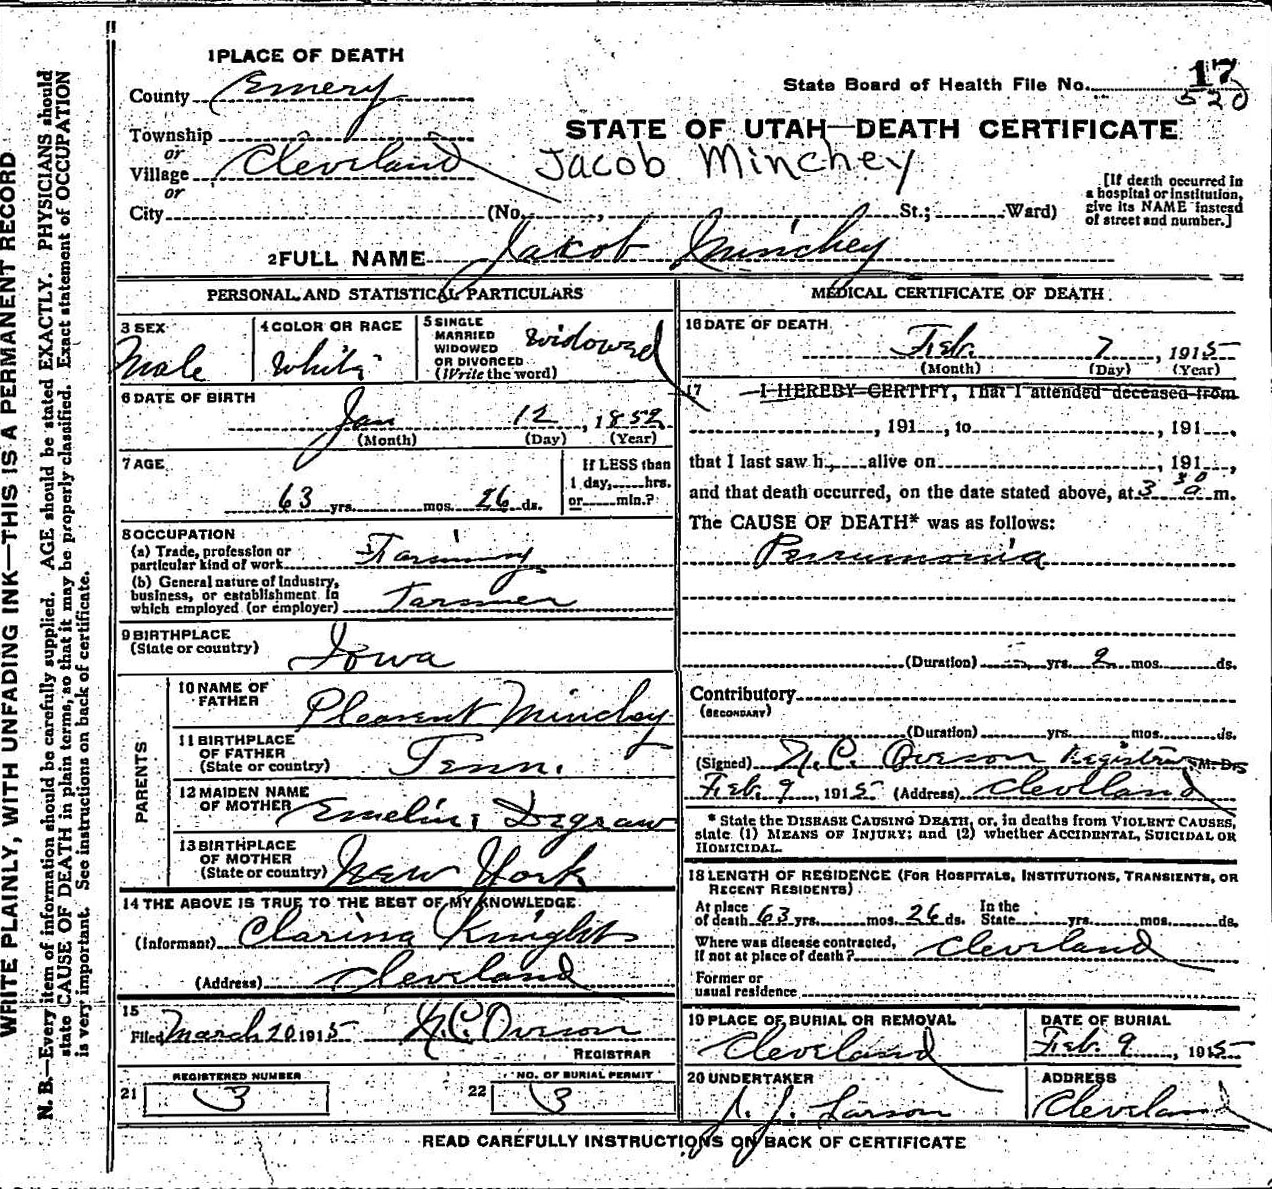 WRITE PLAINLY, WITH UNFADING INK—THIS IS A PERMANENT RECORD
N. B.—Every item of information should be carefully supplied. AGE should be stated EXACTLY. PHYSICIANS should
state CAUSE OF DEATH in plain terms, so that it may be properly classified. Exact statement of OCCUPATION
is very important. See instructions on back of certificate.
1 PLACE OF DEATH
County Emery
State Board of Health File No. 17
520
Township
or
Village Cleveland
or
STATE OF UTAH—DEATH CERTIFICATE
Jacob Minchey
City (No. , St.; Ward)
[If death occurred in
a hospital or institution,
give its NAME instead
of street and number.]
2 FULL NAME Jakob Minchey
PERSONAL AND STATISTICAL PARTICULARS
3 SEX
Male
4 COLOR OR RACE
White
5 SINGLE
MARRIED
WIDOWED
OR DIVORCED
(Write the word)
Widowed
6 DATE OF BIRTH
Jan 12, 1852
(Month) (Day) (Year)
7 AGE
63 yrs. mos. 26 ds.
If LESS than
1 day, hrs.
or min.?
8 OCCUPATION
(a) Trade, profession or
particular kind of work Farming
(b) General nature of Industry,
business, or establishment in
which employed (or employer) Farmer
9 BIRTHPLACE
(State or country) Iowa
PARENTS
10 NAME OF
FATHER Pleasent Minchey
11 BIRTHPLACE
OF FATHER
(State or country) Tenn.
12 MAIDEN NAME
OF MOTHER Emeline Degraw
13 BIRTHPLACE
OF MOTHER
(State or country) New York
14 THE ABOVE IS TRUE TO THE BEST OF MY KNOWLEDGE
(Informant) Clarina Knight
(Address) Cleveland
15
Filed March 20 1915 Overson
REGISTRAR
REGISTERED NUMBER
21 3
NO. OF BURIAL PERMIT
22 3
MEDICAL CERTIFICATE OF DEATH
16 DATE OF DEATH
Feb. 7, 1915
(Month) (Day) (Year)
17 I HEREBY CERTIFY, That I attended deceased from
, 191 , to , 191 ,
that I last saw h alive on , 191 ,
and that death occurred, on the date stated above, at 3 30 a m.
The CAUSE OF DEATH* was as follows:
Pneumonia
(Duration) yrs. 2 mos. ds.
Contributory
(SECONDARY)
(Duration) yrs. mos. ds.
(Signed) Overson Registrar M. D.
Feb. 9, 1915 (Address) Cleveland
* State the DISEASE CAUSING DEATH, or, in deaths from VIOLENT CAUSES,
state (1) MEANS OF INJURY; and (2) whether ACCIDENTAL, SUICIDAL OR
HOMICIDAL.
18 LENGTH OF RESIDENCE (FOR HOSPITALS, INSTITUTIONS, TRANSIENTS, OR
RECENT RESIDENTS)
At place
of death 63 yrs. mos. 26 ds.
In the
State yrs. mos. ds.
Where was disease contracted,
if not at place of death? Cleveland
Former or
usual residence
19 PLACE OF BURIAL OR REMOVAL
Cleveland
DATE OF BURIAL
Feb. 9, 1915
20 UNDERTAKER
Larson
ADDRESS
Cleveland
READ CAREFULLY INSTRUCTIONS ON BACK OF CERTIFICATE